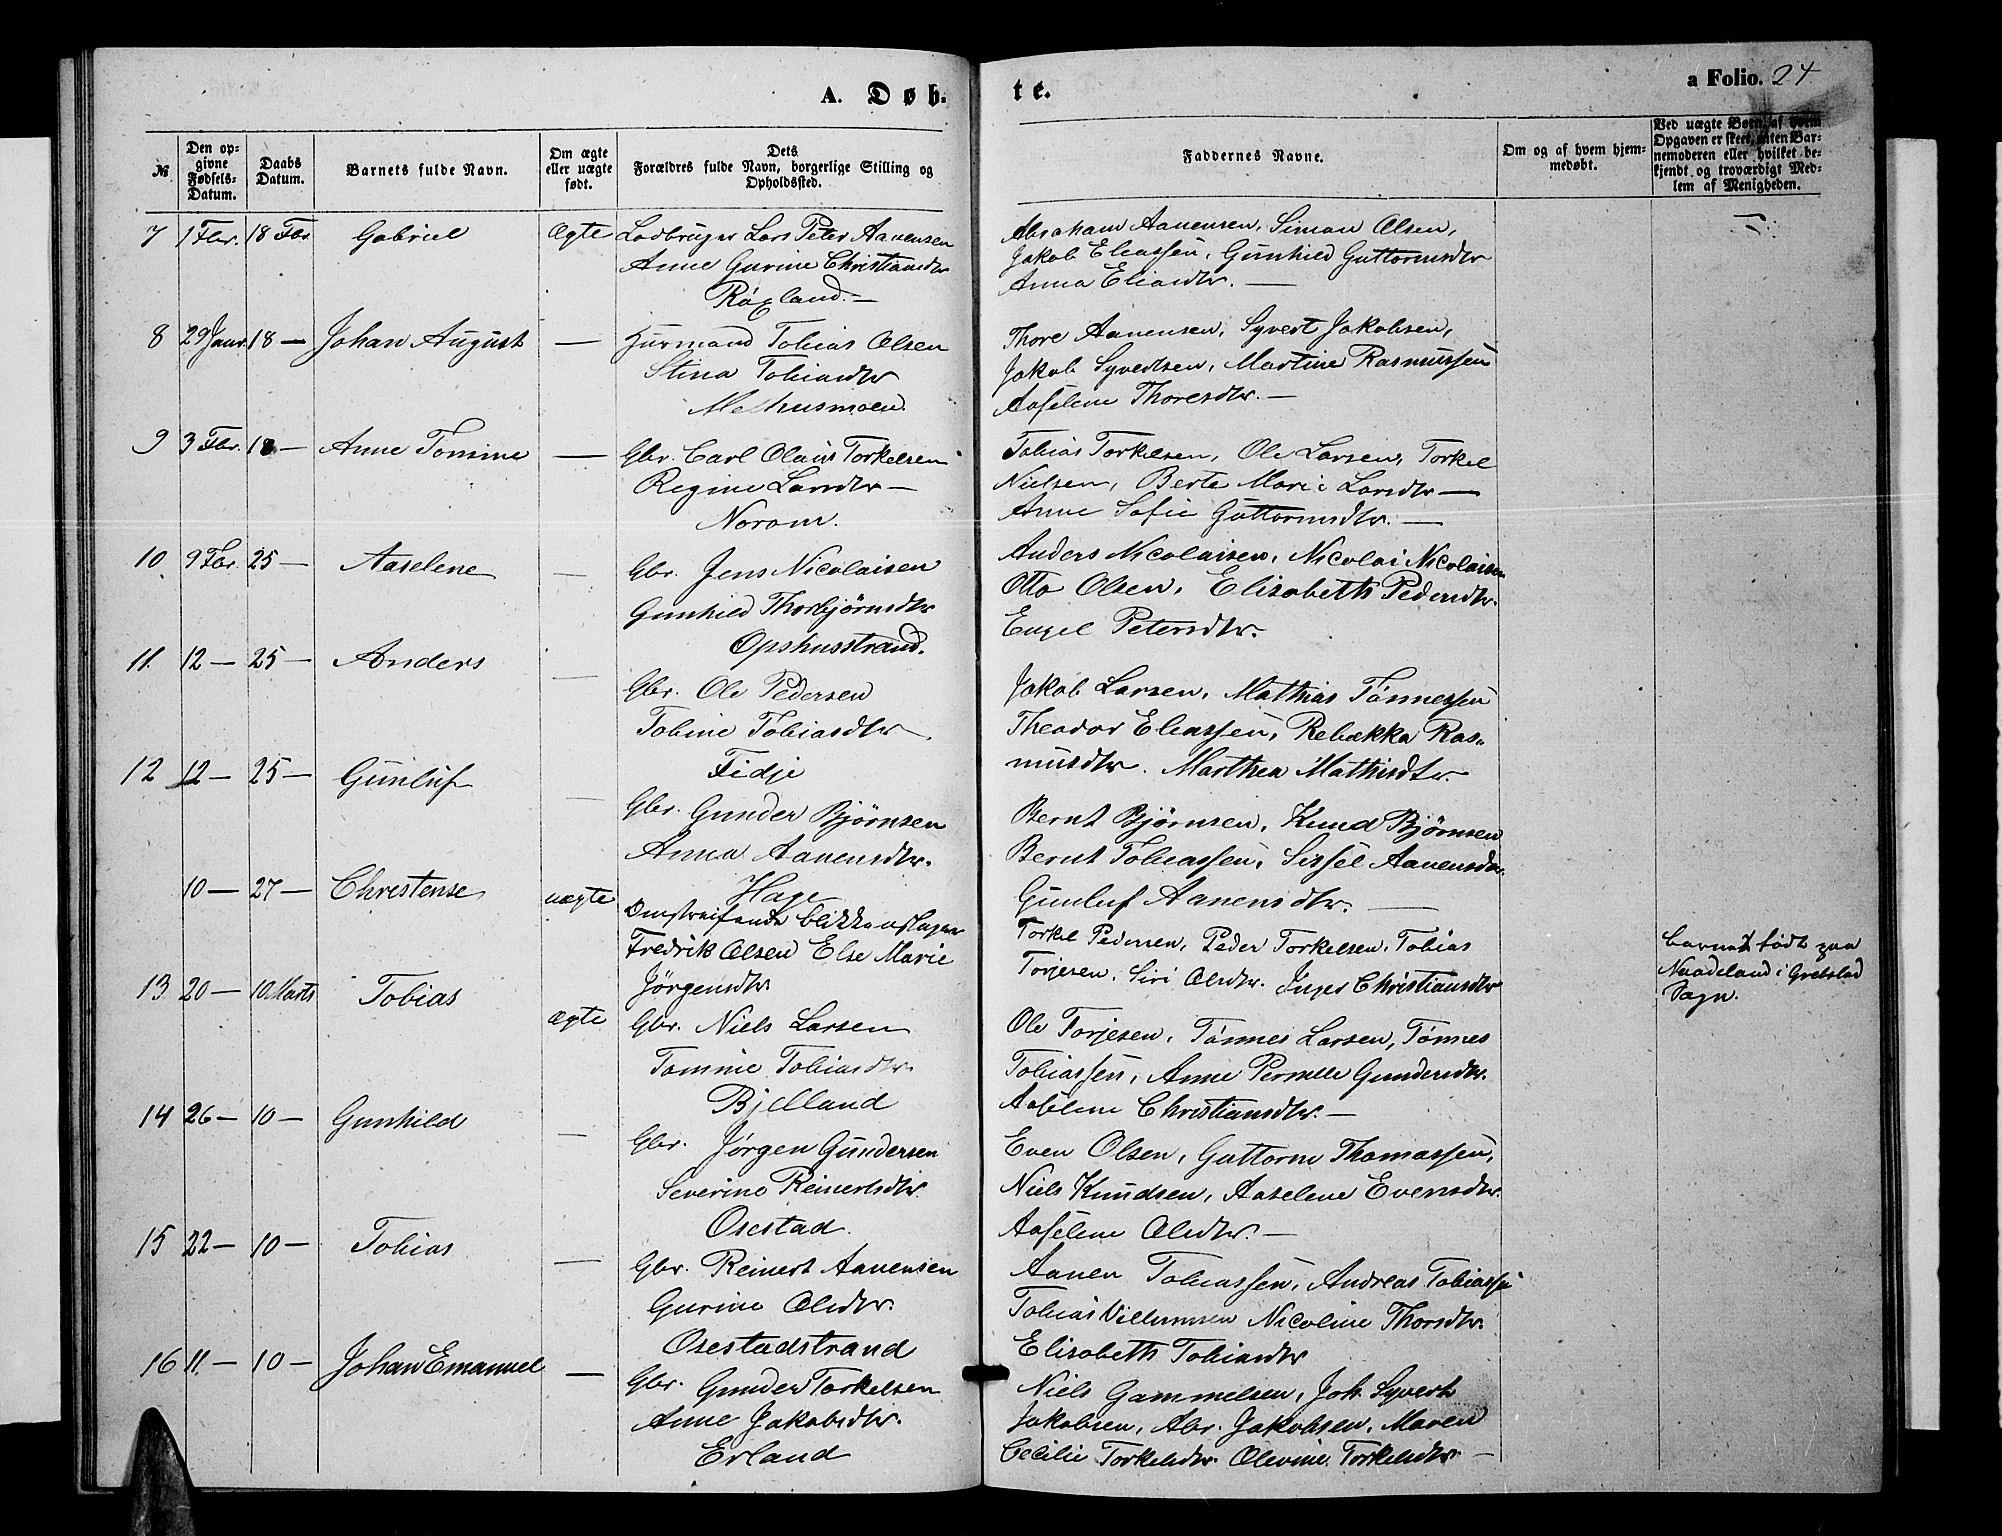 A. Døb-
te.
a Folio. 24
№
Den op-
givne
Fødsels-
Datum.
Daabs
Datum.
Barnets fulde Navn.
Om ægte
eller uægte
født.
Dets
Forældres fulde Navn, borgerlige Stilling og
Opholdssted.
Faddernes Navne.
Om og af hvem hjem-
medøbt.
Ved uægte Børn, af hvem
Opgaven er skeet, enten Bar-
nemoderen eller hvilket be-
kjendt og troværdigt Med-
lem af Menigheden.
7 1 Fbr. 18 Fbr Gabriel Ægte Ladbruger Lars Peter Aanensen
Anne Gurine Christiansdtr
Røxland.—
Abraham Aanensen, Simon Olsen,
Jakob Eleassen, Gunhild Guttormsdtr
Anna Eliasdtr. —
8 29 Janr 18 — Johan August — Huusmand Tobias Olsen
Stina Tobiasdtr
Melhusmoen.
Thore Aanensen, Syvert Jakobsen,
Jakob Syvertsen, Martine Rasmussen
Aaselene Thoresdtr. —
9 3 Fbr. 18 — Anne Tomine — Gbr. Carl Olaus Torkelsen
Regine Larsdtr —
Norom.
Tobias Torkelsen, Ole Larsen, Torkel
Nielsen, Berte Marie Larsdtr —
Anne Sofie Guttormsdtr. —
10 9 Fbr. 25 — Aaselene — Gbr. Jens Nicolaisen
Gunhild Thorbjørnsdtr
Opshusstrand.
Anders Nicolaisen, Nicolai Nicolaisen
Otto Olsen, Elisabeth Pedersdtr.
Engel Petersdtr.
11. 12 — 25 — Anders — Gbr. Ole Pedersen
Tobine Tobiasdtr
Fidje
Jakob Larsen, Mathias Tønnessen
Theodor Eleassen, Rebekka Ras-
musdtr. Marthea Mathisdtr.
12 12 — 25 — Gunluf — Gbr. Gunder Bjørnsen
Anna Aanensdtr.
Hage
Bernt Bjørnsen, Knud Bjørnsen
Bernt Tobiassen, Sissel Aanensdtr.
Gunluf Aanensdtr. —
10 — 27 — Christense uægte Omstreifende blikkenslager
Fredrik Olsen Else Marie
Jørgensdtr.
Torkel Pedersen, Peder Torkelsen, Tobias
Torjesen, Siri Olsdtr. Inger Christiansdtr
barnet født paa
Naadeland i Gretstad
Sogn.
13 20 — 10 Marts Tobias ægte Gbr. Niels Larsen
Tomine Tobiasdtr.
Bjelland
Ole Torjesen, Tønnes Larsen, Tønnes
Tobiassen, Anne Pernelle Gundersdtr.
Aaselene Christiansdtr. —
14 26 — 10 — Gunhild — Gbr. Jørgen Gundersen
Severine Reinertsdtr.
Osestad.
Even Olsen, Guttorm Thomassen,
Niels Knudsen, Aaselene Evensdtr.
Aaselene Olsdtr. —
15 22 — 10 — Tobias — Gbr. Reinert Aanensen
Gurine Olsdtr.
Osestadstrand
Aanen Tobiassen, Andreas Tobiassen
Tobias Villumsen Nicoline Thorsdtr.
Elisabeth Tobiasdtr
16 11 — 10 — Johan Emanuel — Gbr. Gunder Torkelsen
Anne Jakobsdtr.
Erland
Niels Gammelsen, Joh. Syvert
Jakobsen, Abr. Jakobsen, Maren
Cecilie Torkelsdtr. Olevine Torkelsdtr. —